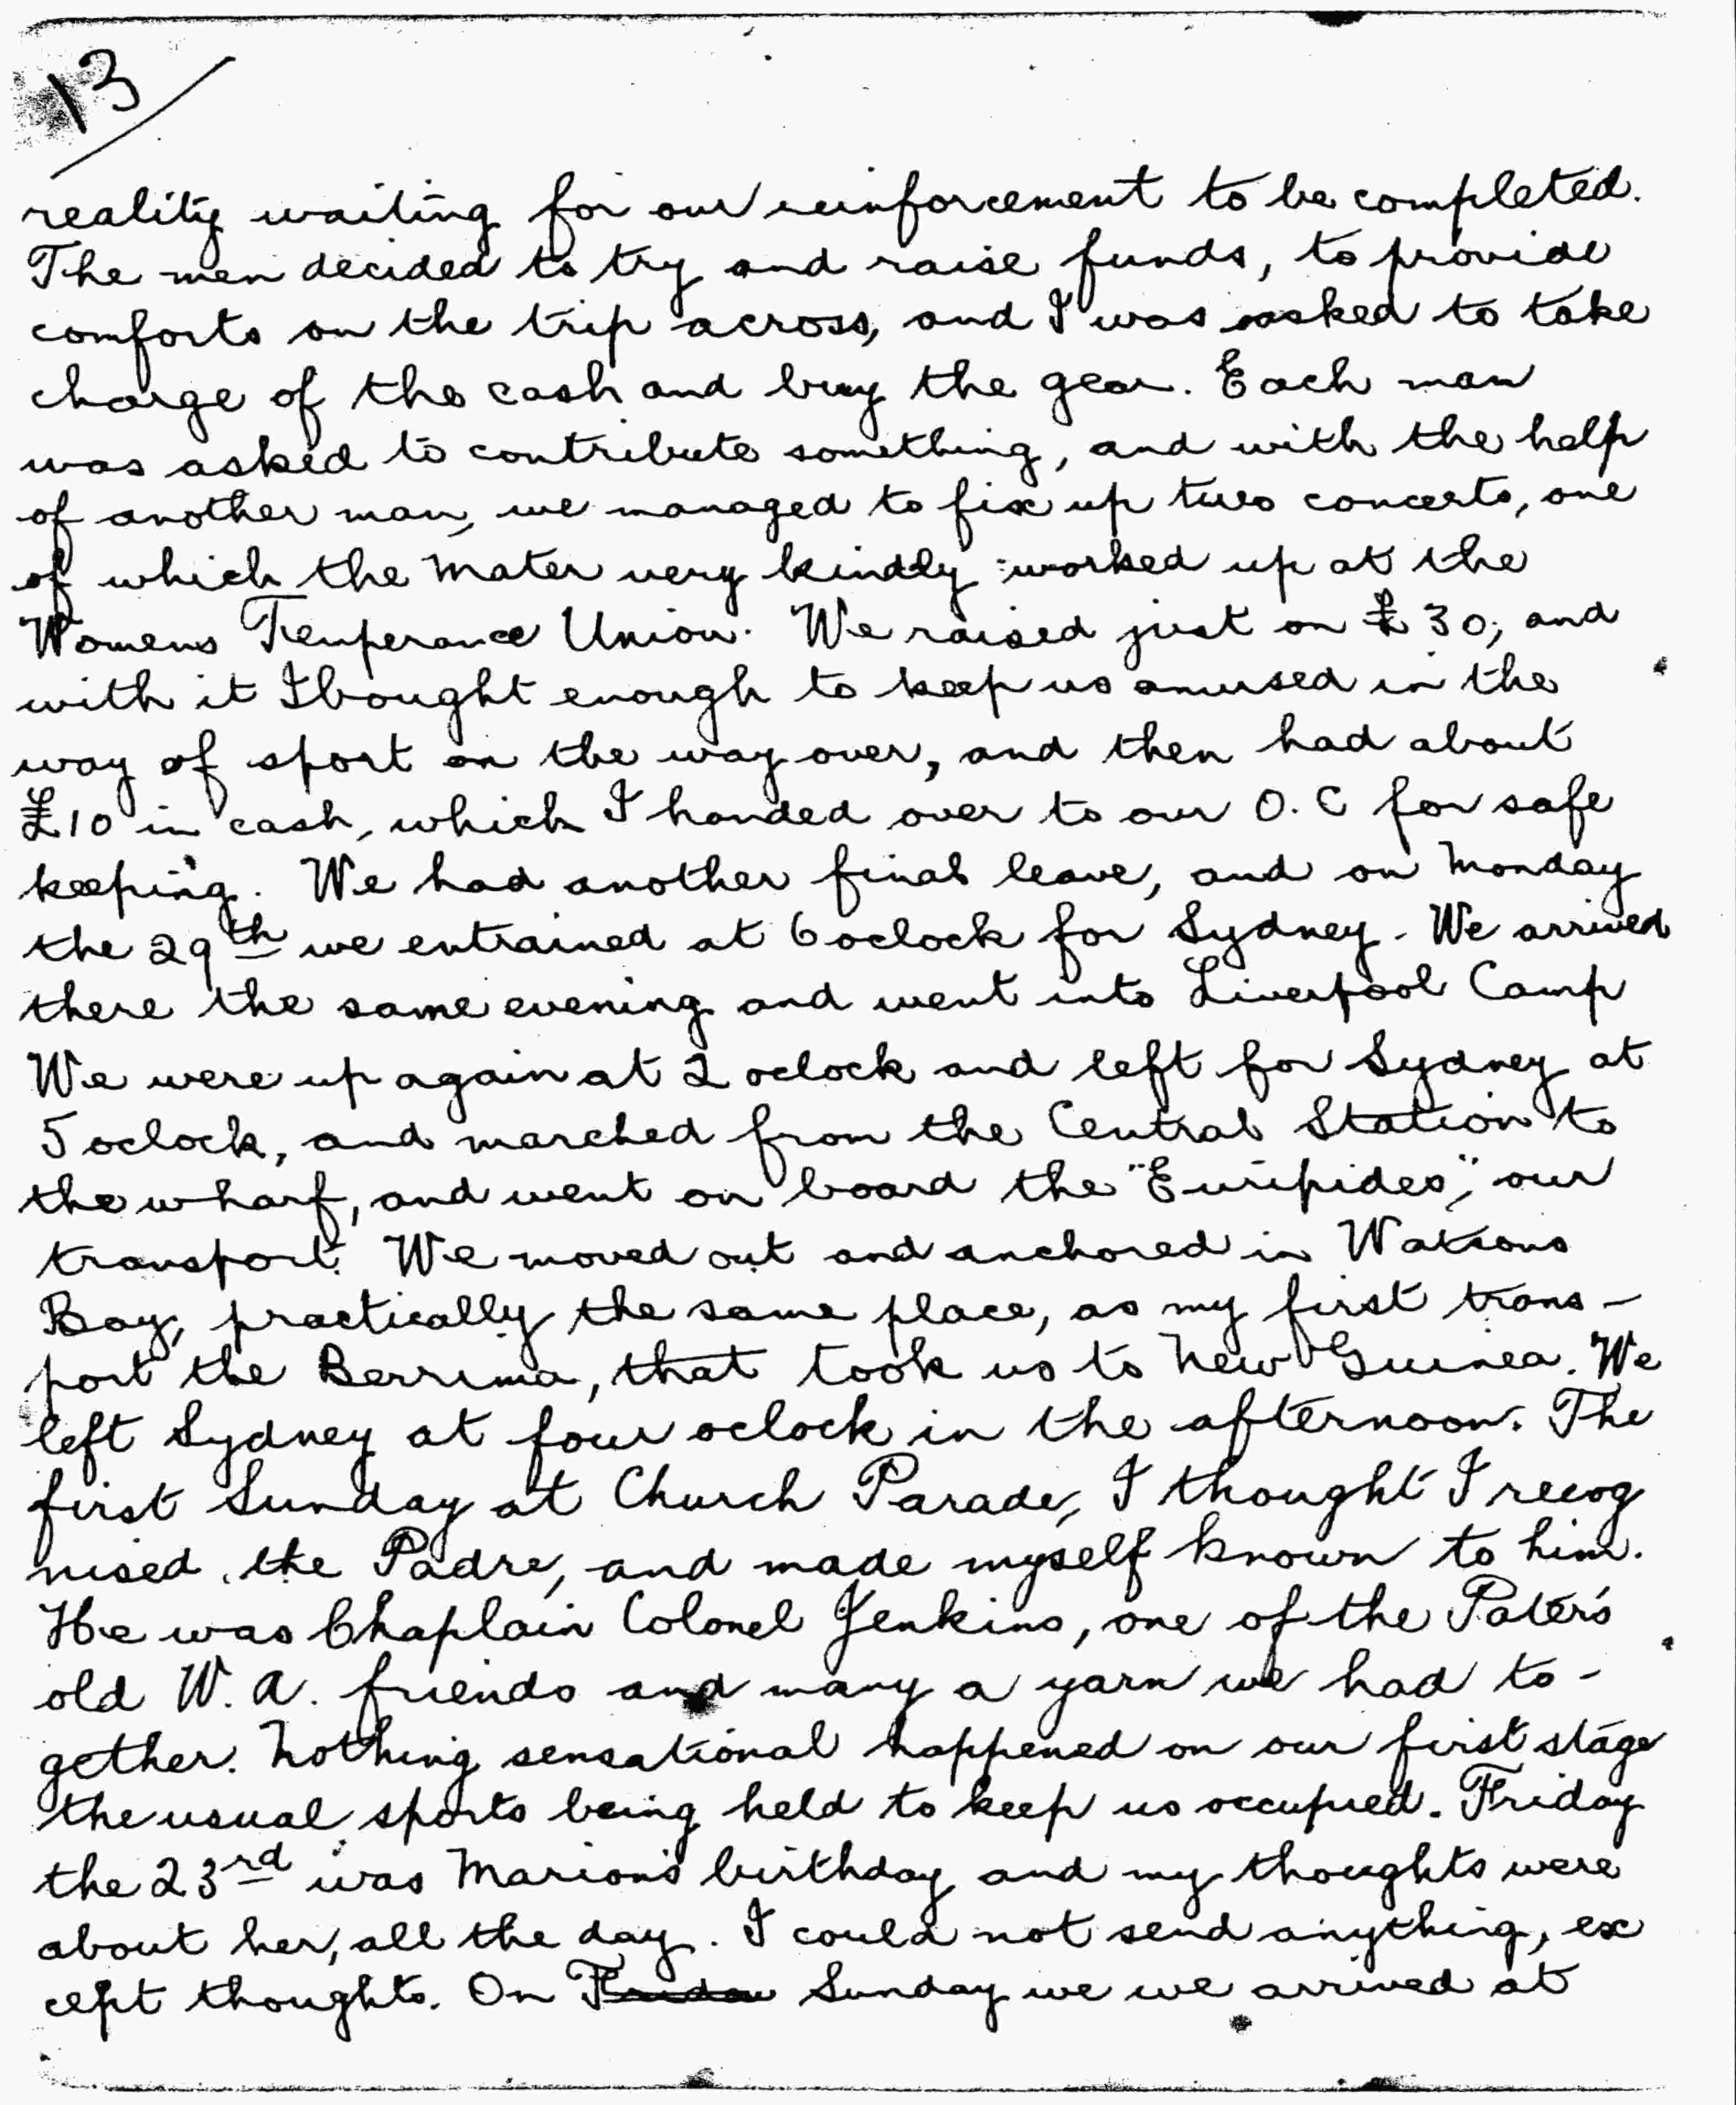 13
reality waiting for our reinforcement to be completed.
The men decided to try and raise funds, to provide
comforts on the trip across, and I was asked to take
charge of the cash and buy the gear. Each man
was asked to contribute something, and with the help
of another man, we managed to fix up two concerts, one
of which the Mater very kindly worked up at the
Womens Temperance Union. We raised just on £30, and
with it I bought enough to keep us amused in the
way of sport on the way over, and then had about
£10 in cash, which I handed over to our O.C for safe
keeping. We had another final leave, and on Monday
the 29th we entrained at 6 oclock for Sydney. We arrived
there the same evening and went into Liverpool Camp
We were up again at 2 oclock and left for Sydney at
5 oclock, and marched from the Central Station to
the wharf, and went on board the "Euripides," our
transport. We moved out and anchored in Watsons
Bay, practically the same place, as my first trans-
port the Berrima, that took us to New Guinea. We
left Sydney at four oclock in the afternoon. The
first Sunday at Church Parade, I thought I recog
nised the Padre, and made myself known to him.
He was Chaplain Colonel Jenkins, one of the Pater's
old W.A. friends and many a yarn we had to-
gether. Nothing sensational happened on our first stage
the usual sports being held to keep us occupied. Friday
the 23rd was Marion's birthday and my thoughts were
about her, all the day. I could not send anything, ex
cept thoughts. On Friday Sunday we we arrived at